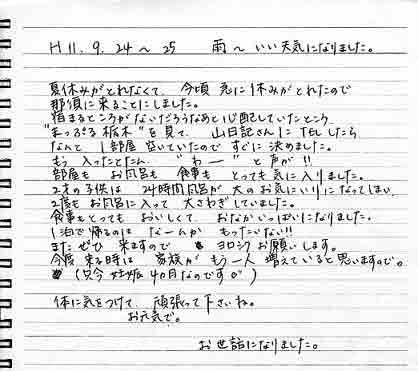 H 11. 9. 24 〜 25　雨 〜 いい天気になりました。
夏休みがとれなくて、今頃 急に休みがとれたので
那須に来ることにしました。
泊まるところがないだろうなあと心配していたところ
"まっぷる栃木"を見て、山日記さんに TELしたら
なんと 1部屋 空いていたので すぐに決めました。
もう 入ったとたん "わー" と声が!!
部屋も お風呂も 食事も とっても気に入りました。
2才の子供は 24時間風呂が 大のお気にいりになってしまい、
2度も お風呂に入って 大さわぎしていました。
食事もとっても おいしくて、おなかいっぱいになりました。
1泊で帰るのは なーんか もったいない!!
また ぜひ 来ますので ヨロシクお願いします。
今度 来る時は 家族が もう一人 増えていると思いますので。
(只今 妊娠 4カ月なのです)
体に気をつけて、頑張って下さいね。
お元気で。
お世話になりました。